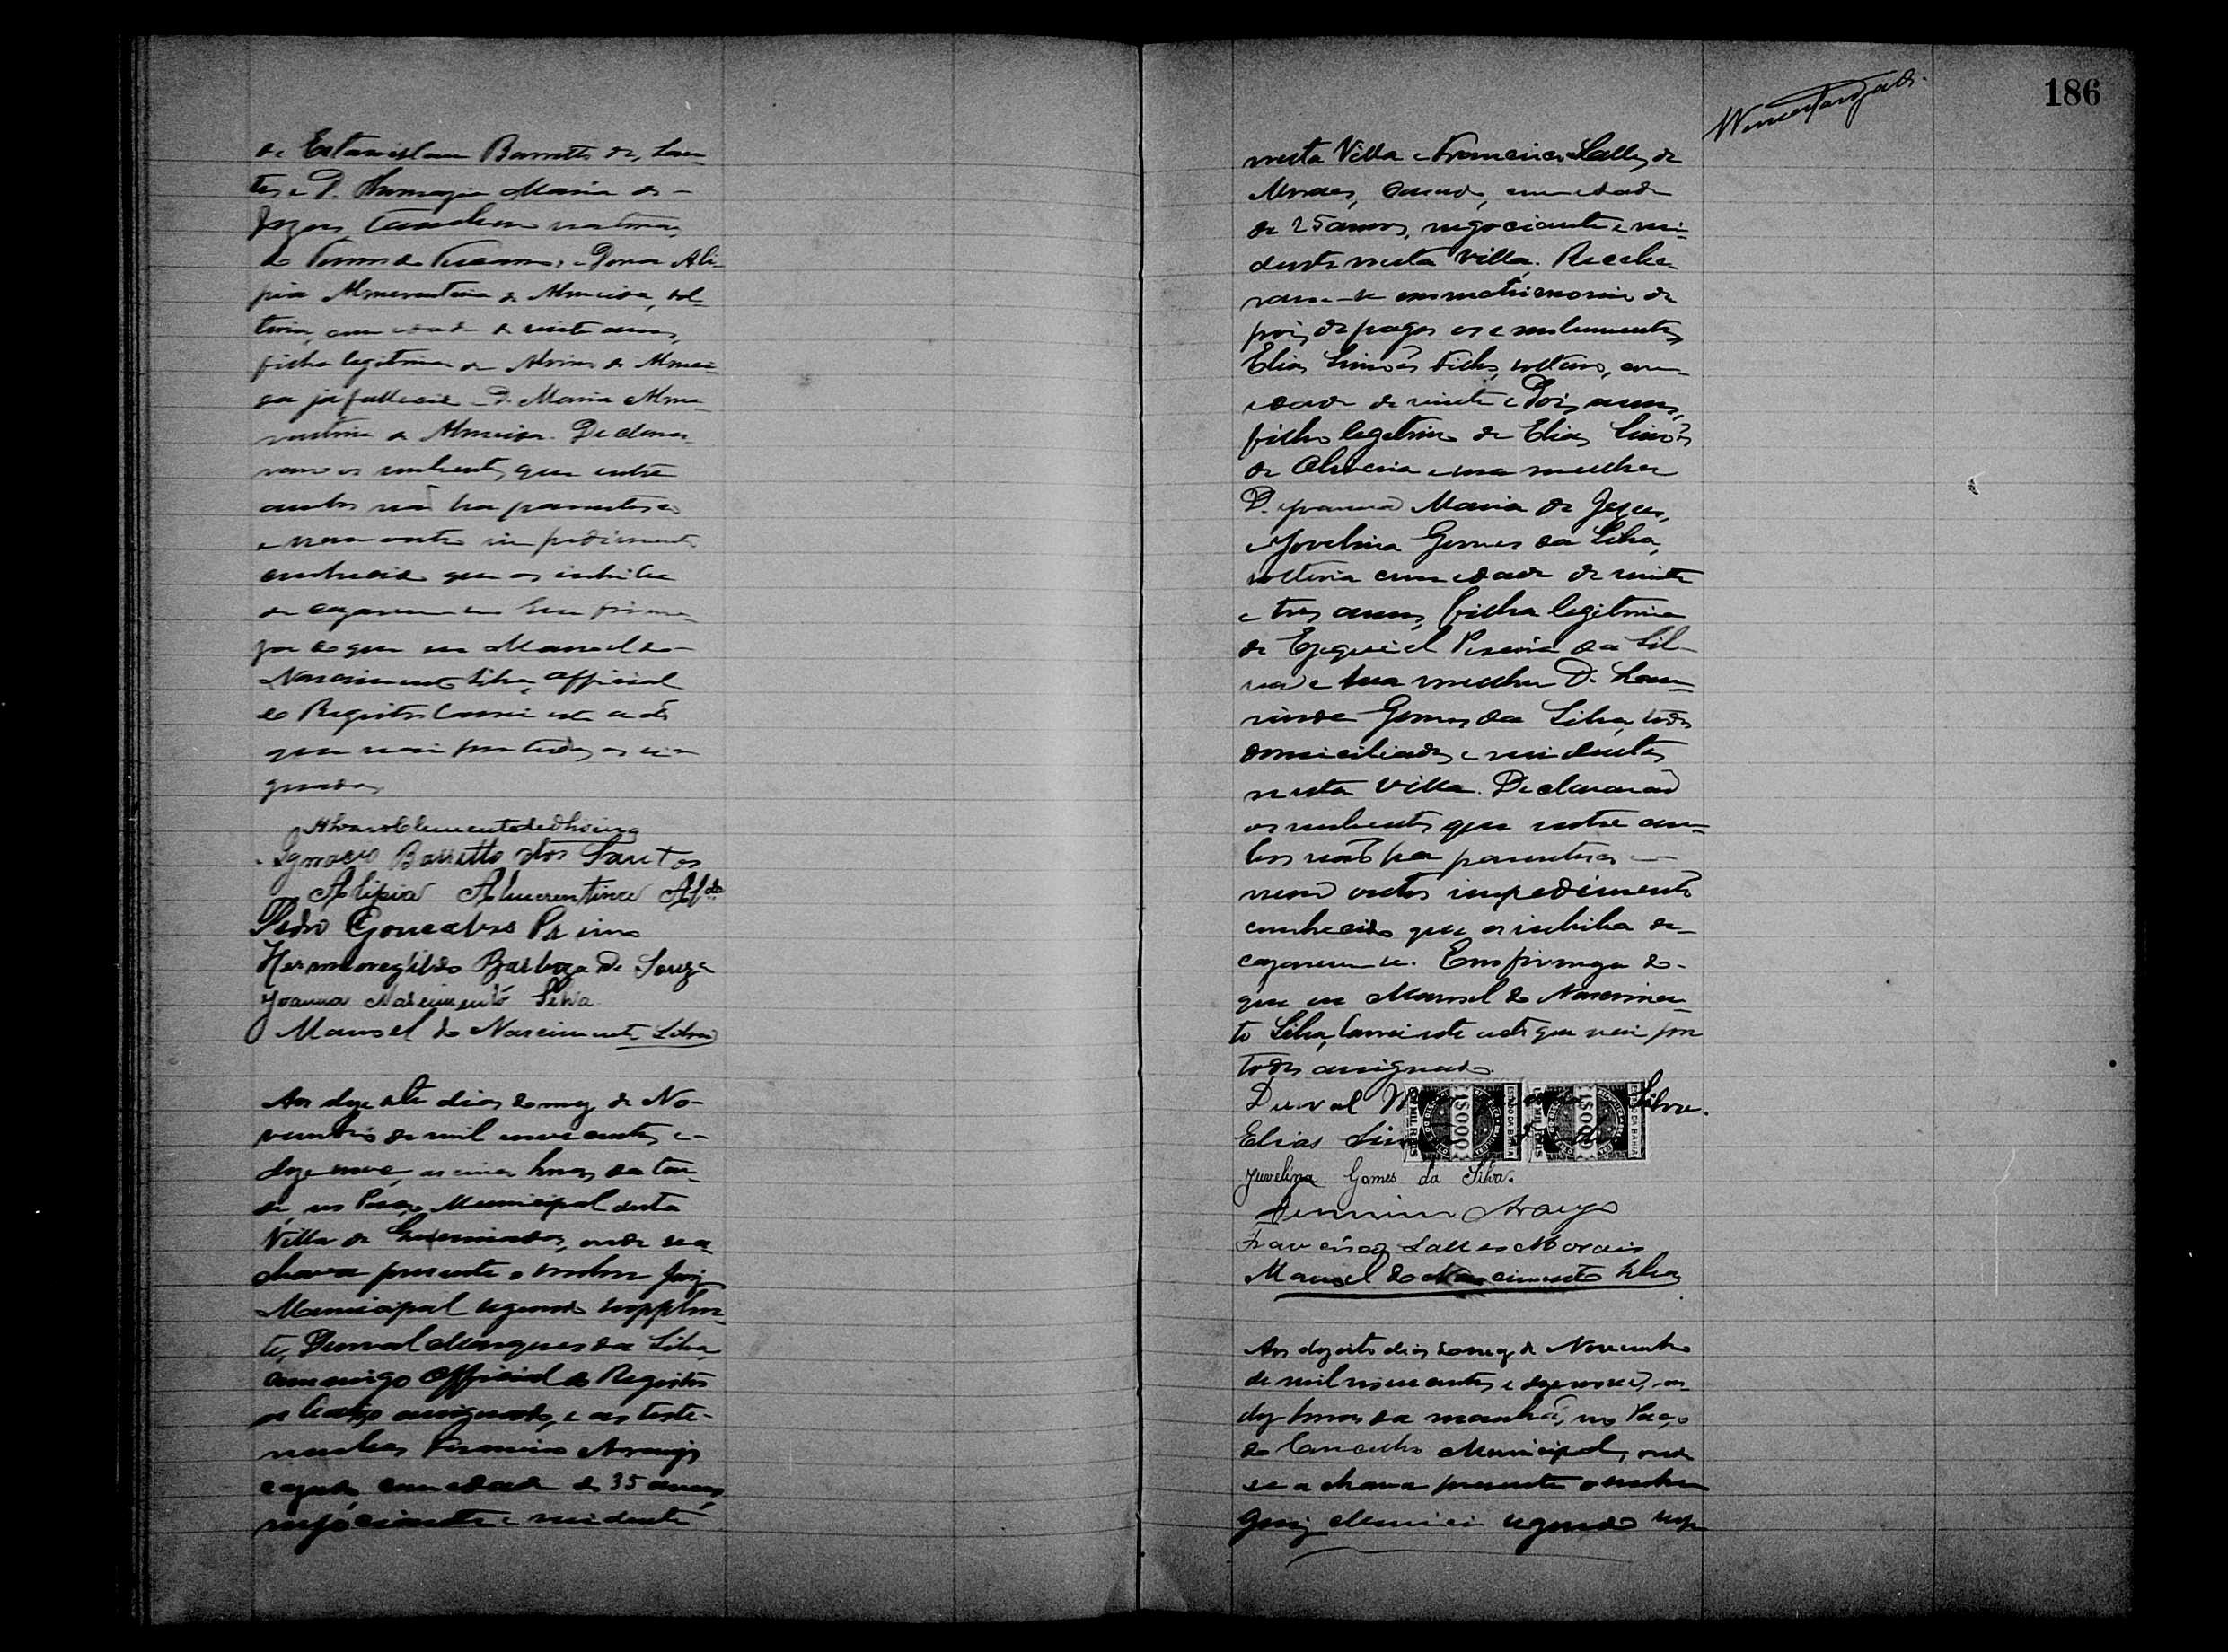 de Estanislau Barretto dos San
tos e D. Maria de
Jezus tambem naturaes
do Termo de Tucano, e Dona Ali
pia Almerentina de Almeida, sol
teira, com idade de vinte annos,
filha legitima de de Almei
da já fallecido e D. Maria Alme
rentina de Almeida. Declara
ram os nubentes que entre
ambos não ha parentesco
e nem outro impedimento
conhecido que os inhiba
de cazarem-se. Em firme
za do que eu Manoel do
Nascimento Silva, official
do Registro lavrei este acto
que vai por todos assi
gnados
Alvaro Clemente de Oliveira
Ignacio Barretto dos Santos
Alipia Almerentina Alda
Pedro Goncalves Primo
Hermenegildo Barboza de Souza
Joanna Nascimento Silva
Manoel do Nascimento Silva
Aos dezesete dias do mez de No
vembro de mil novecentos e
dezenove, as cinco horas da tar
de, no Paço Municipal desta
Villa de onde se a
chava presente o senhor Juiz
Municipal segundo supplen
te, Durval Marques da Silva
commigo Official do Registro
abaixo assignado, e as teste
munhas Firmino Araujo
cazado, com idade de 35 annos,
negociante e rezidente
186
nesta Villa e Francisco Salles de
Moraes, cazado, com idade
de 25 annos, negociante e rezi
dente nesta Villa. Recebe
ram-se em matrimonio de
pois de pagos os emolumentos
Elias Simões Filho, solteiro, com
idade de vinte e dois annos,
filho legitimo de Elias Simões
de Oliveira e sua mulher
D. Joanna Maria de Jezus,
e Jovelina Gomes da Silva,
solteira com idade de vinte
e tres annos, filha legitima
de Ezequiel Pereira da Sil
va e sua mulher D. Lau
rinda Gomes da Silva, todos
domiciliados e rezidentes
nesta Villa. Declararão
os nubentes que entre am
bos não ha parentesco e
nem outro impedimento
conhecido que os inhiba de
cazarem-se. Em firmeza do
que eu Manoel do Nascimen
to Silva, lavrei este acto que vai por
todos assignado.
Durval M Silva.
Elias Simões
ESTADO DA BAHIA
1$000
MIL RÉIS
ESTADO DA BAHIA
1$000
UM MIL RÉIS
Juvelina Gomes da Silva.
Firmino Araujo
Francisco Salles Morais
Manoel do Nascimento Silva
Aos dezoito dias do mez de Novembro
de mil novecentos e dezenove, as
dez horas da manhã, no Paço
do Conselho Municipal, onde
se achava presente o senhor
Juiz segundo sup